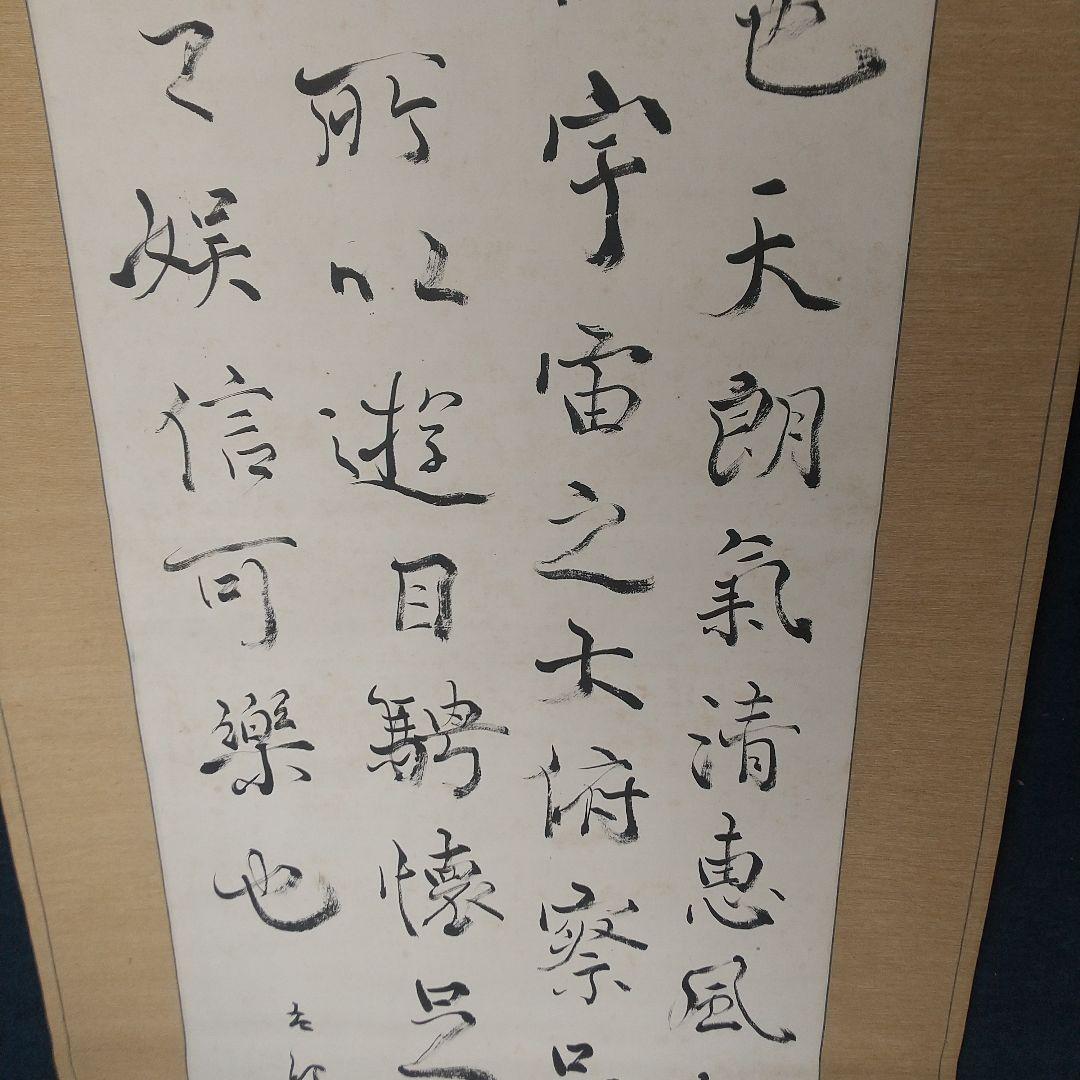 也天朗氣清惠風
宇宙之大俯察品
所以遊目騁懷足
之娛信可樂也
右